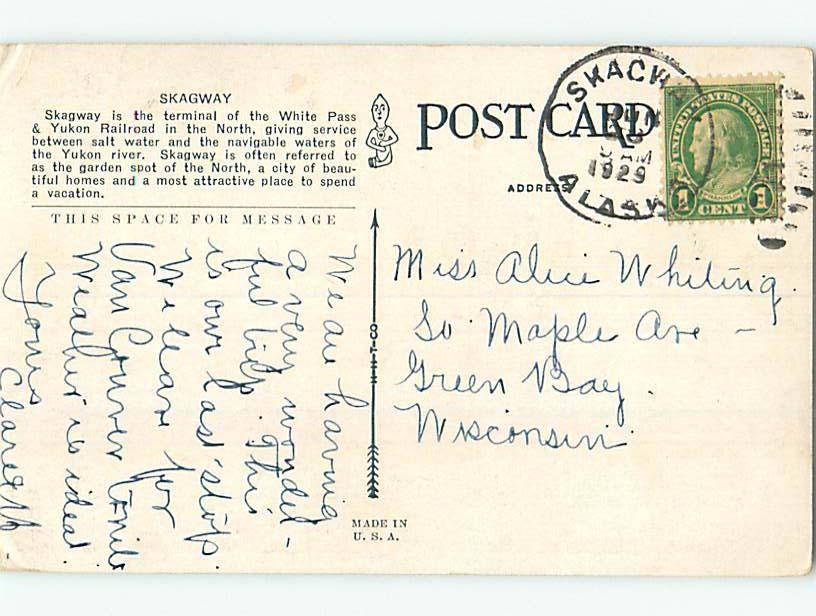 SKAGWAY
Skagway is the terminal of the White Pass
& Yukon Railroad in the North, giving service
between salt water and the navigable waters of
the Yukon river. Skagway is often referred to
as the garden spot of the North, a city of beau-
tiful homes and a most attractive place to spend
a vacation.
THIS SPACE FOR MESSAGE
We are having
a very wonder-
ful trip. This
is our last stop.
We leave for
Van Couver tonite
Weather is ideal
Yours
POST CARD
ADDRESS
SKAGW
AM
1929
ALASK
UNITED STATES POSTAGE
1 CENT 1
Miss Alice Whiting.
So. Maple Ave -
Green Bay.
Wisconsin.
H-H-T-CO
MADE IN
U. S. A.